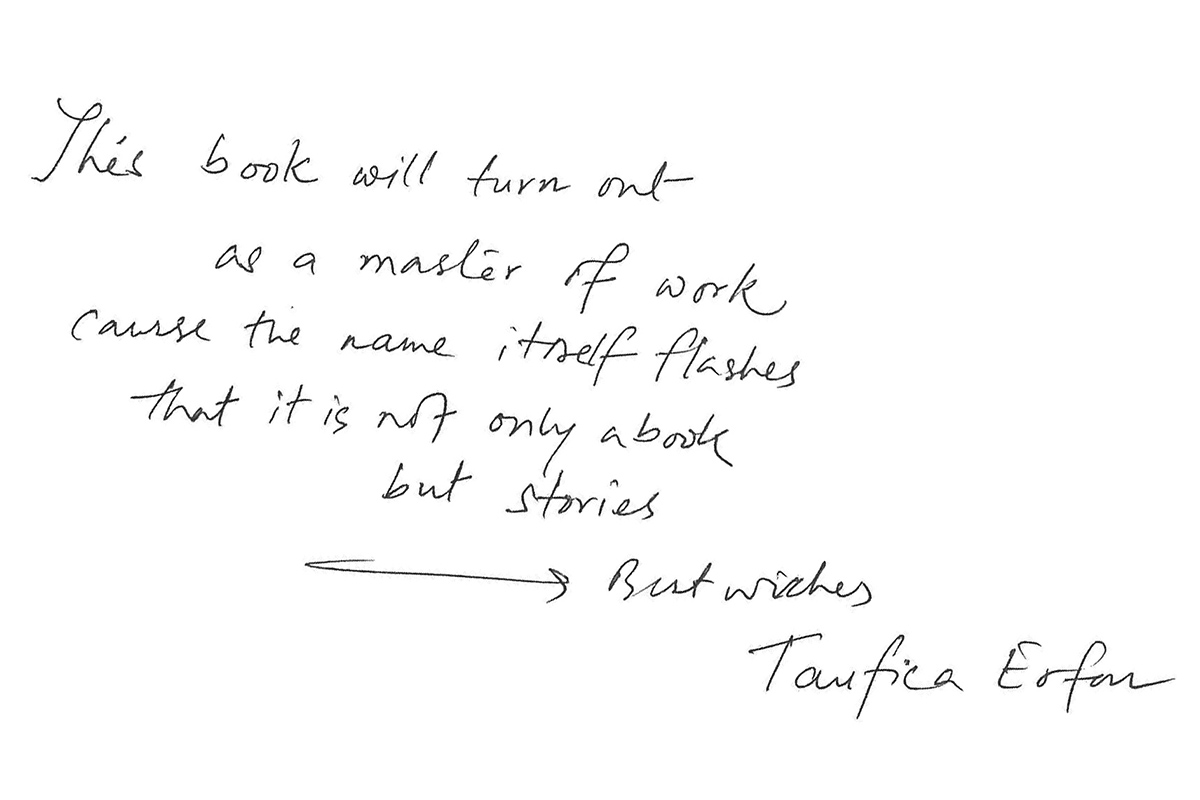 This book will turn out
as a master of work
cause the name itself flashes
that it is not only a book
but stories
Best wishes
Taufica Erfan